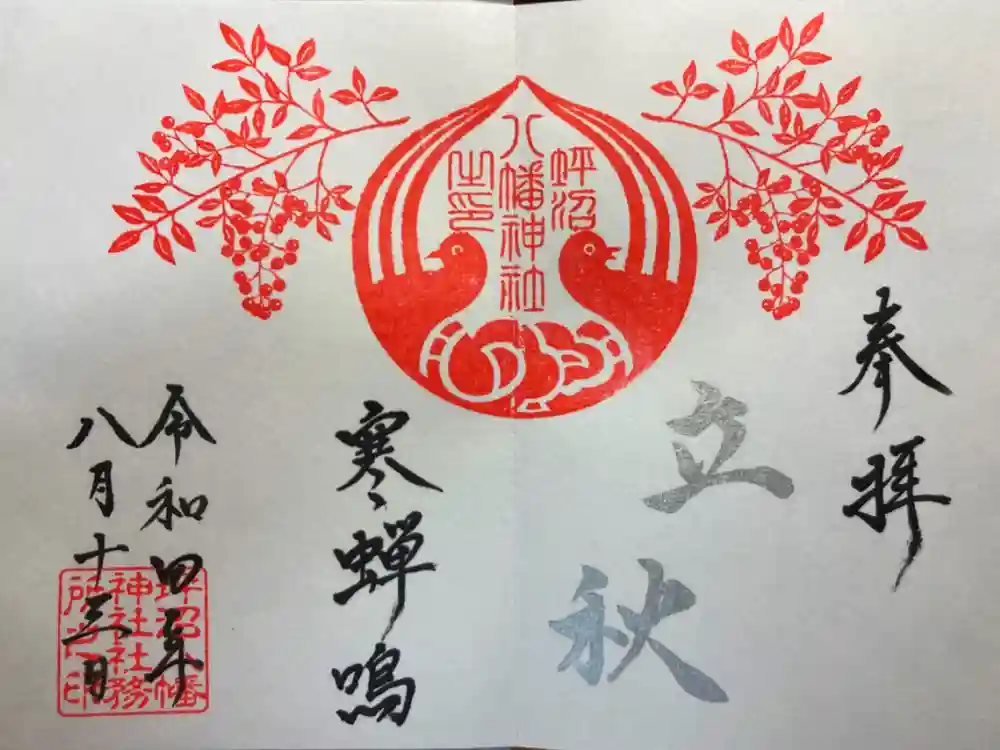 奉拝
立秋
坪沼
八幡神社
之印
寒蝉鳴
令和四年
八月十三日
坪沼八幡
神社社務
所之印